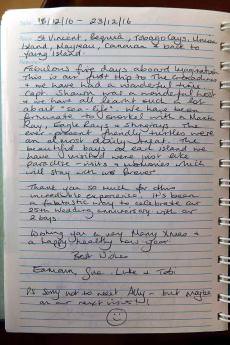 18/12/16 - 23/12/16
St Vincent, Bequia, Tobago Cays, Union
Island, Mayreau, Canouan & back to
Young Island.
Fabulous five days aboard
This is our first trip to the Grenadines
& we have had a wonderful time
Capt Shawn was a wonderful host
& we have all learnt such a lot
about "sea-life". We have been
fortunate to snorkel with a Manta
Ray, Eagle Rays & stingrays. The
ever present friendly turtles were
an almost daily treat. The
beautiful bays at each island we
have visited were just like
paradise - visits & memories which
will stay with us forever.
Thank you so much for this
incredible experience. It's been
a fantastic way to celebrate our
25th wedding anniversary with our
2 boys.
Wishing you a very Merry Xmas &
a happy healthy new year.
Best Wishes
Eamonn, Sue, Luke & Tobi
PS Sorry not to meet Ally - but maybe
on our next visit!!